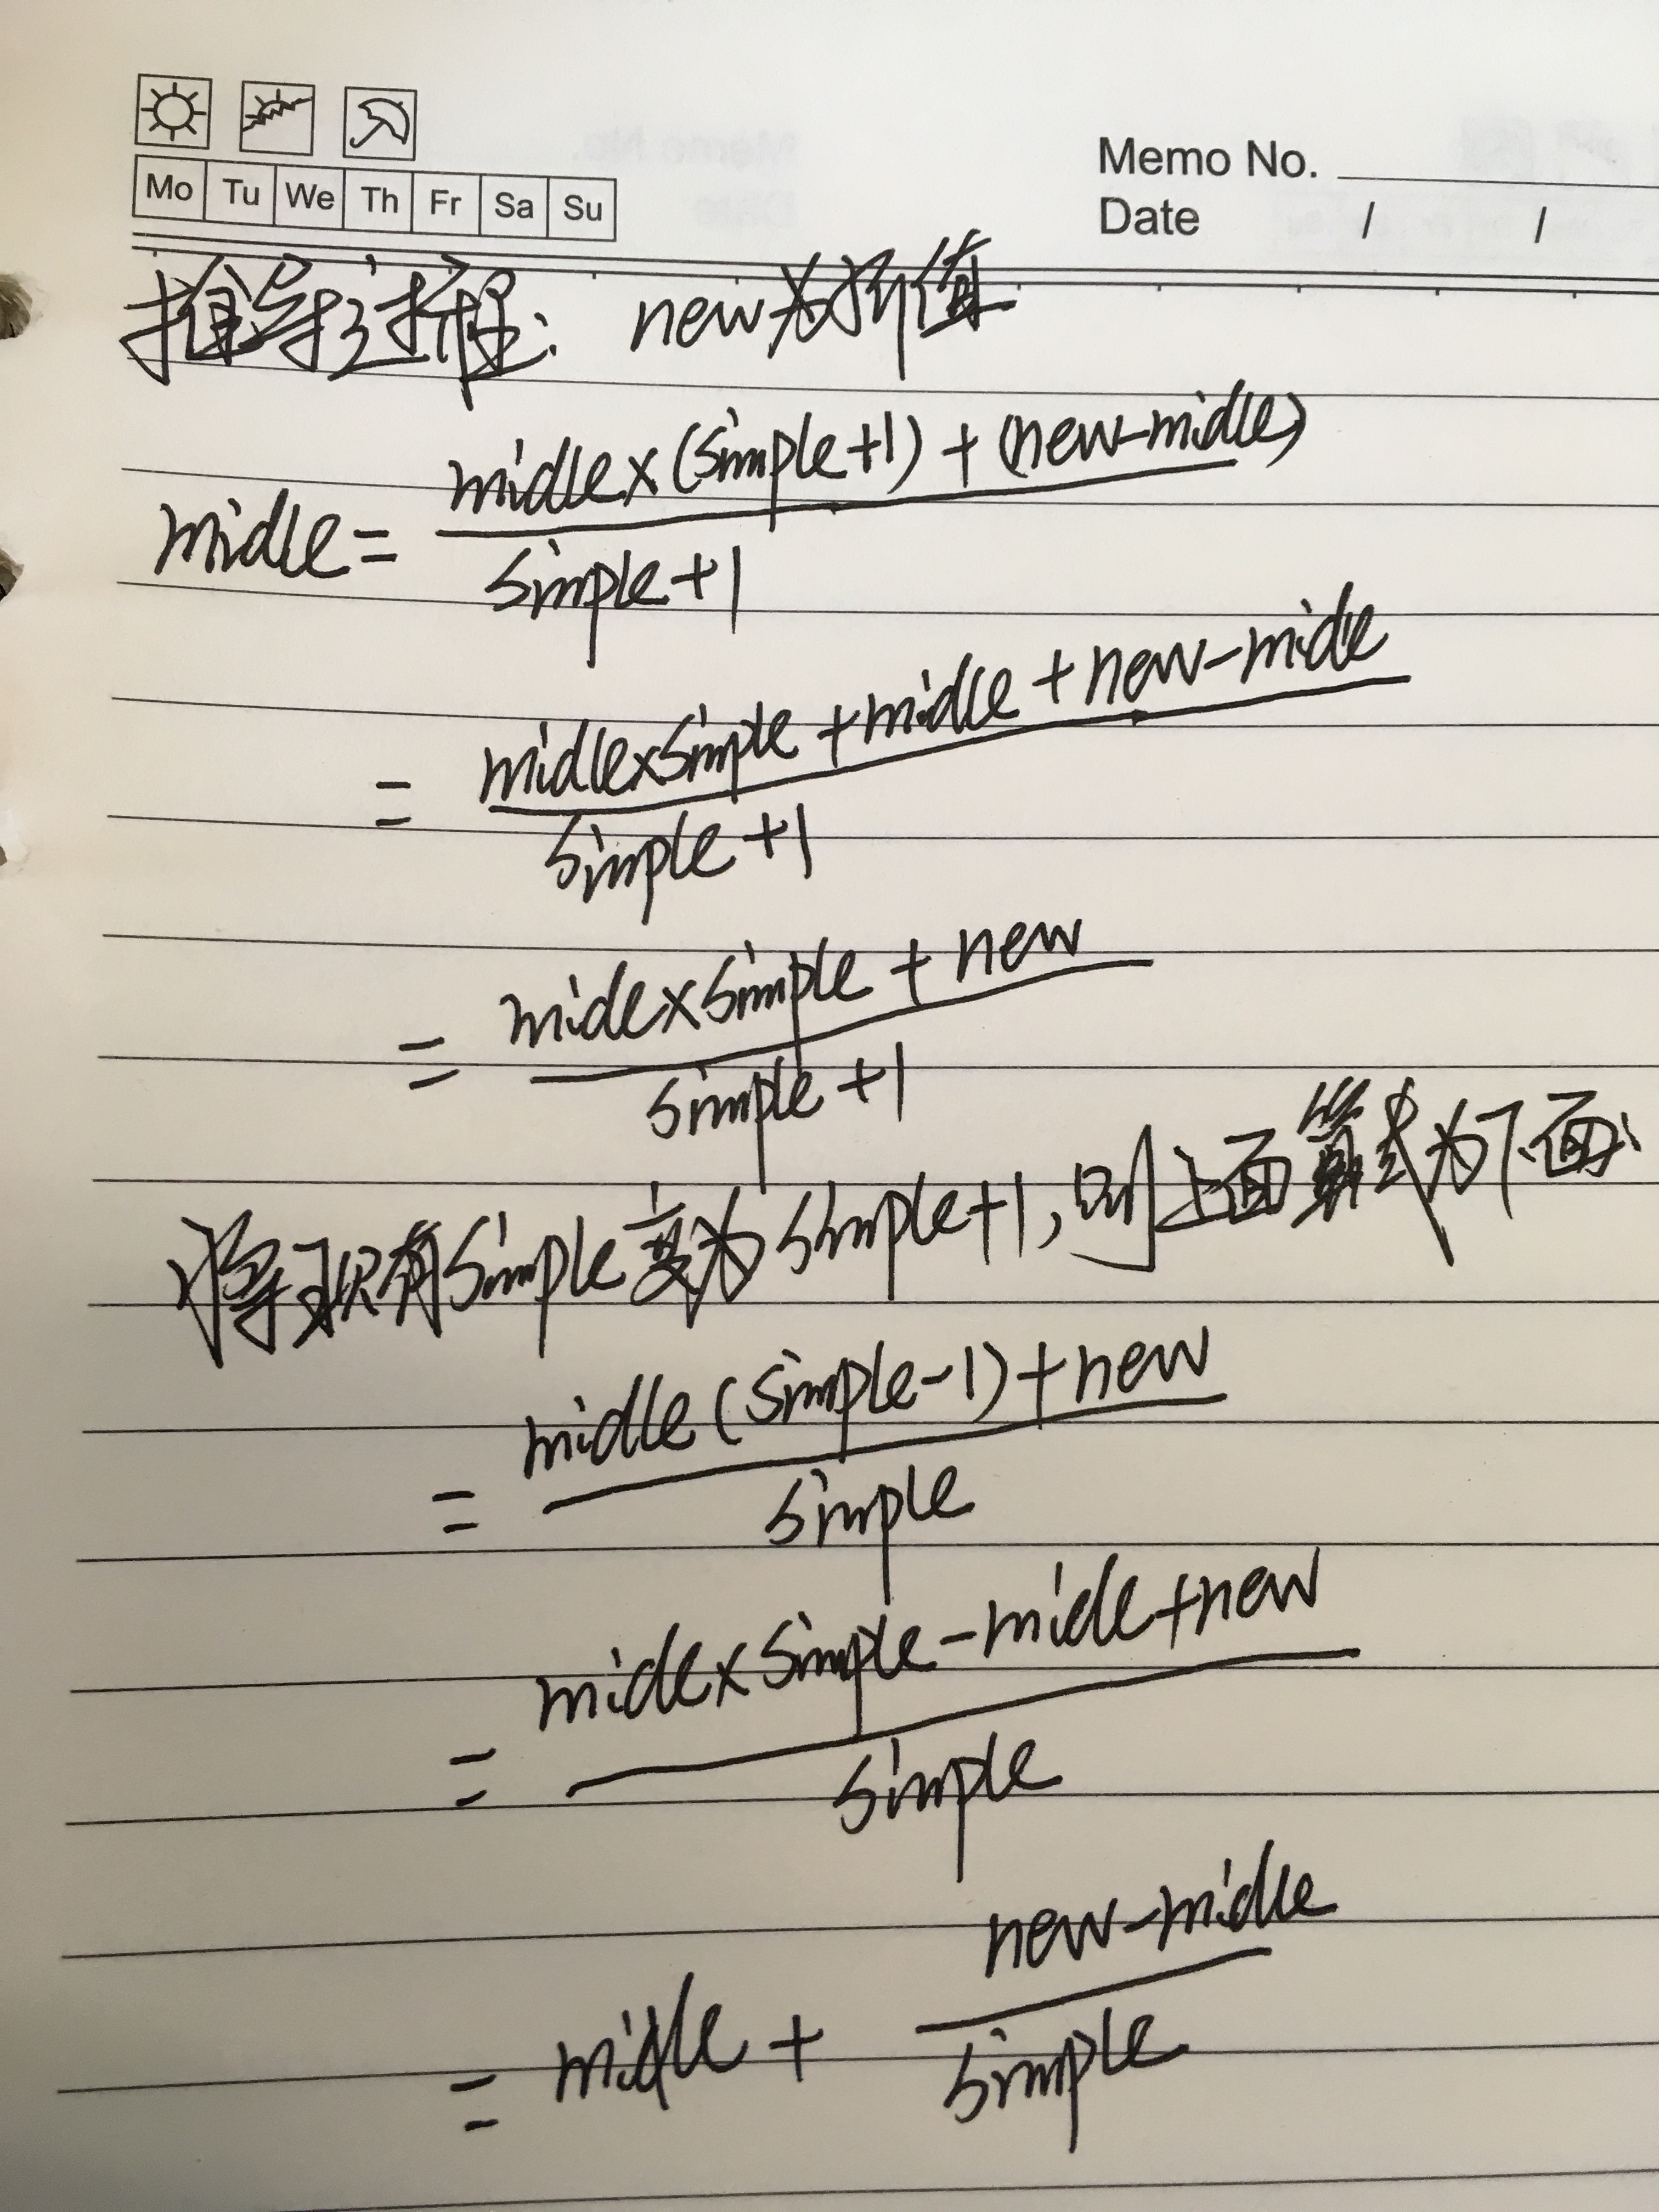 Mo Tu We Th Fr Sa Su
Memo No.
Date / /
推导过程: new为新值
midle = midle×(simple+1) + (new-midle)
simple+1
= midle×simple + midle + new - midle
simple+1
= midle×simple + new
simple+1
将现有simple变为simple+1,则上面算式为下面:
= midle(simple-1)+new
simple
= midle×simple-midle+new
simple
= midle + new-midle
simple